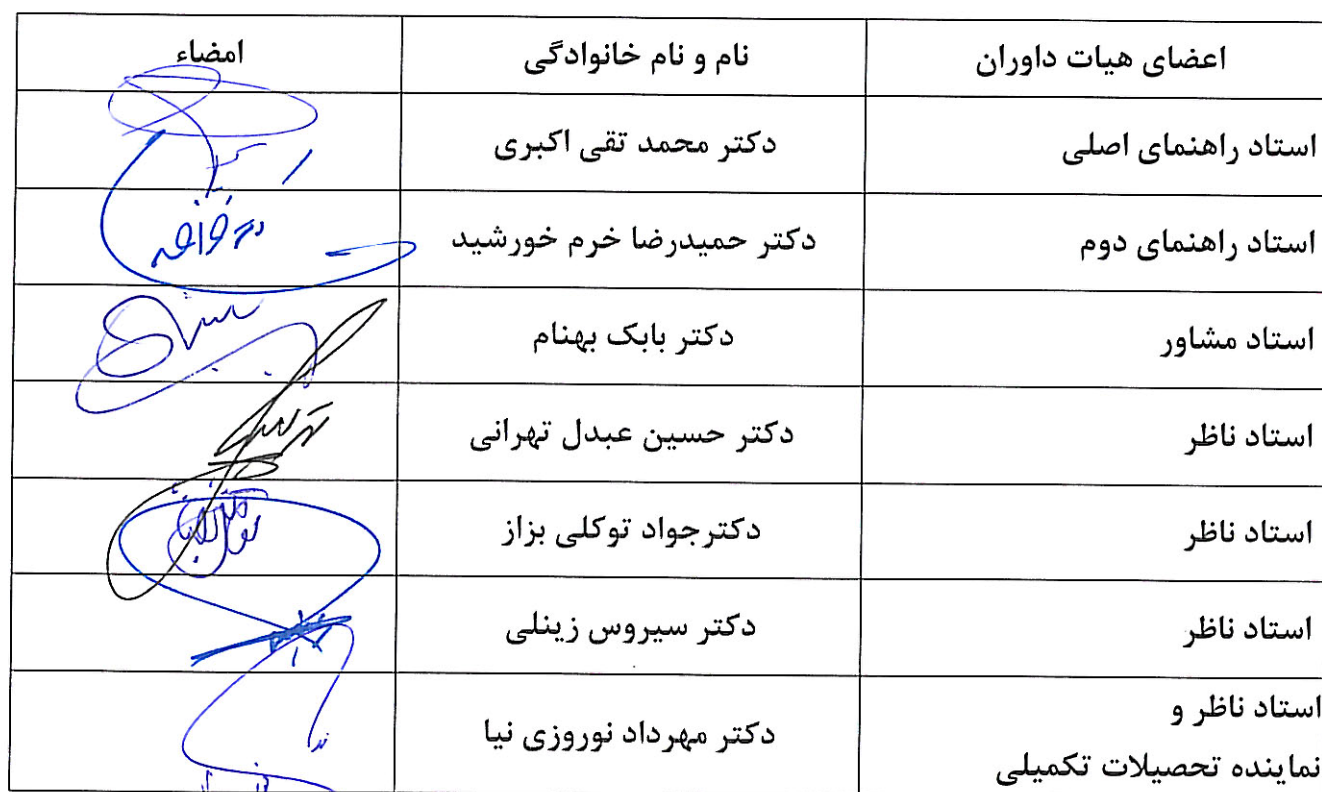 اعضای هیات داوران نام و نام خانوادگی امضاء
استاد راهنمای اصلی دکتر محمد تقی اکبری
استاد راهنمای دوم دکتر حمیدرضا خرم خورشید
استاد مشاور دکتر بابک بهنام
استاد ناظر دکتر حسین عبدل تهرانی
استاد ناظر دکترجواد توکلی بزاز
استاد ناظر دکتر سیروس زینلی
استاد ناظر و
نماینده تحصیلات تکمیلی دکتر مهرداد نوروزی نیا